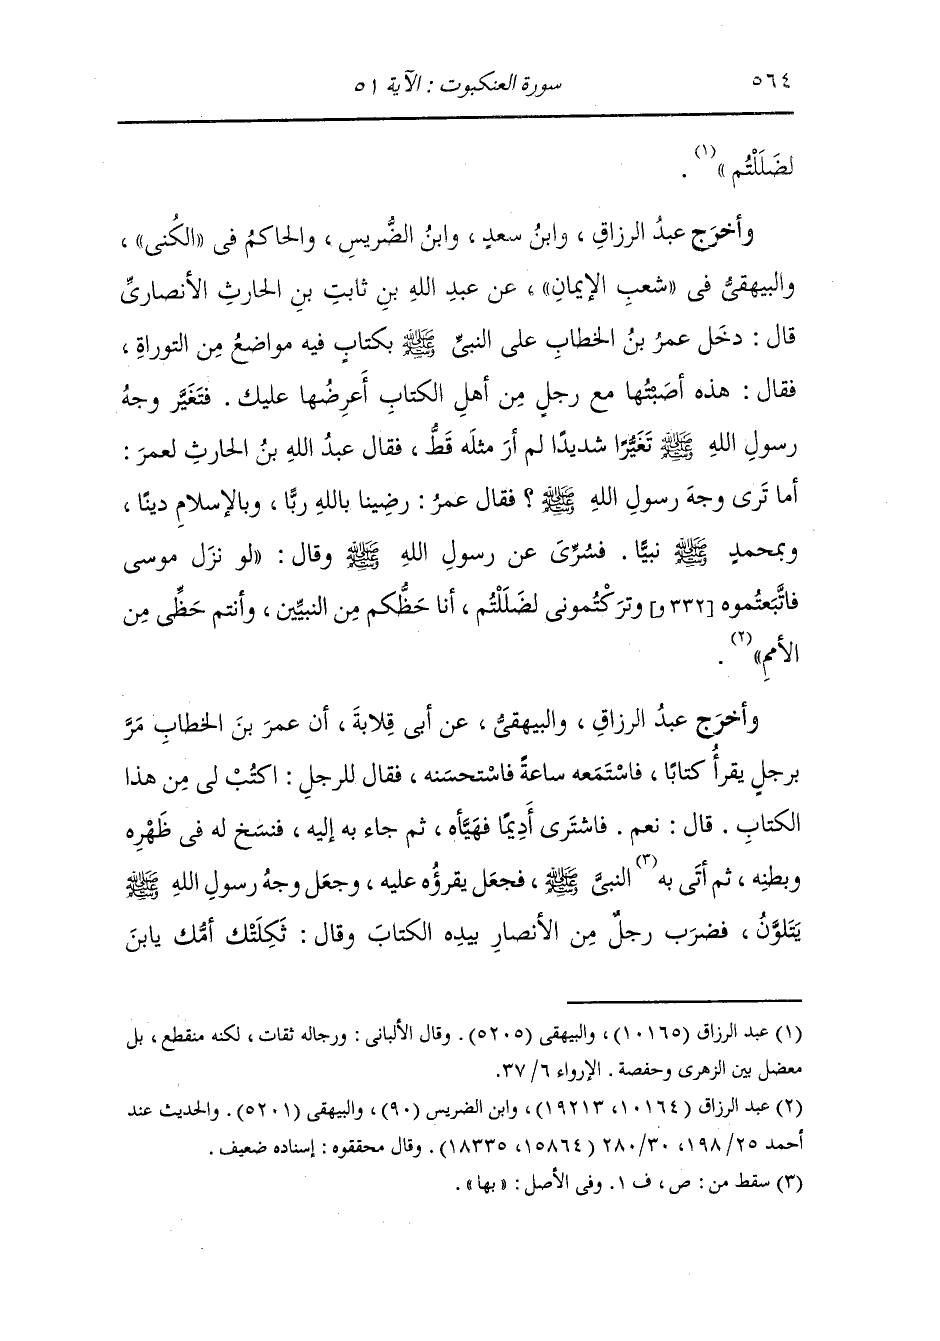 ٥٦٤
سورة العنكبوت : الآية ٥١
لضَلَلْتُم»(١) .
وأخرَج عبدُ الرزاقِ ، وابنُ سعدٍ ، وابنُ الضُّريسِ ، والحاكمُ فى «الكُنى» ،
والبيهقىُّ فى «شعبِ الإيمانِ» ، عن عبدِ اللهِ بنِ ثابتِ بنِ الحارثِ الأنصارىِّ
قال : دخَل عمرُ بنُ الخطابِ على النبىِّ ﷺ بكتابٍ فيه مواضعُ مِن التوراةِ ،
فقال : هذه أصَبْتُها مع رجلٍ مِن أهلِ الكتابِ أَعرِضُها عليك . فتَغَيَّر وجهُ
رسولِ اللهِ ﷺ تَغَيُّرًا شديدًا لم أرَ مثلَه قَطُّ ، فقال عبدُ اللهِ بنُ الحارثِ لعمرَ :
أما تَرى وجهَ رسولِ اللهِ ﷺ ؟ فقال عمرُ : رضِينا باللهِ ربًّا ، وبالإسلامِ دينًا ،
وبمحمدٍ ﷺ نبيًّا . فسُرِّىَ عن رسولِ اللهِ ﷺ وقال : «لو نزَل موسى
فاتَّبَعتُموه [٣٣٢و] وترَكْتُمونى لضَلَلْتُم ، أنا حَظُّكم مِن النبيِّين ، وأنتم حَظِّى مِن
الأممِ»(٢) .
وأخرَج عبدُ الرزاقِ ، والبيهقىُّ ، عن أبى قِلابةَ ، أن عمرَ بنَ الخطابِ مَرَّ
برجلٍ يقرأُ كتابًا ، فاسْتَمَعه ساعةً فاسْتحسَنه ، فقال للرجلِ : اكتُبْ لى مِن هذا
الكتابِ . قال : نعم . فاشتَرى أَدِيمًا فهَيَّأه ، ثم جاء به إليه ، فنسَخ له فى ظَهْرِه
وبطنِه ، ثم أتَى به(٣) النبىَّ ﷺ ، فجعَل يقرؤُه عليه ، وجعَل وجهُ رسولِ اللهِ ﷺ
يَتَلوَّنُ ، فضرَب رجلٌ مِن الأنصارِ بيدِه الكتابَ وقال : ثَكِلَتْك أمُّك يابنَ
(١) عبد الرزاق (١٠١٦٥) ، والبيهقى (٥٢٠٥) . وقال الألبانى : ورجاله ثقات ، لكنه منقطع ، بل
معضل بين الزهرى وحفصة . الإرواء ٦/ ٣٧.
(٢) عبد الرزاق (١٠١٦٤، ١٩٢١٣) ، وابن الضريس (٩٠) ، والبيهقى (٥٢٠١) . والحديث عند
أحمد ٢٥/ ١٩٨، ٣٠/ ٢٨٠ (١٥٨٦٤، ١٨٣٣٥) . وقال محققوه : إسناده ضعيف .
(٣) سقط من : ص ، ف ١. وفى الأصل : «بها» .